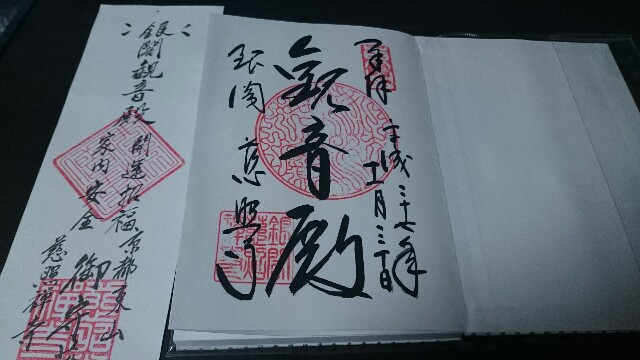 奉拝
平成二十七年
十一月三十日
観音殿
銀閣 慈照寺
開運招福
京都東山
銀閣観音殿
御守
家内安全
慈照禅寺